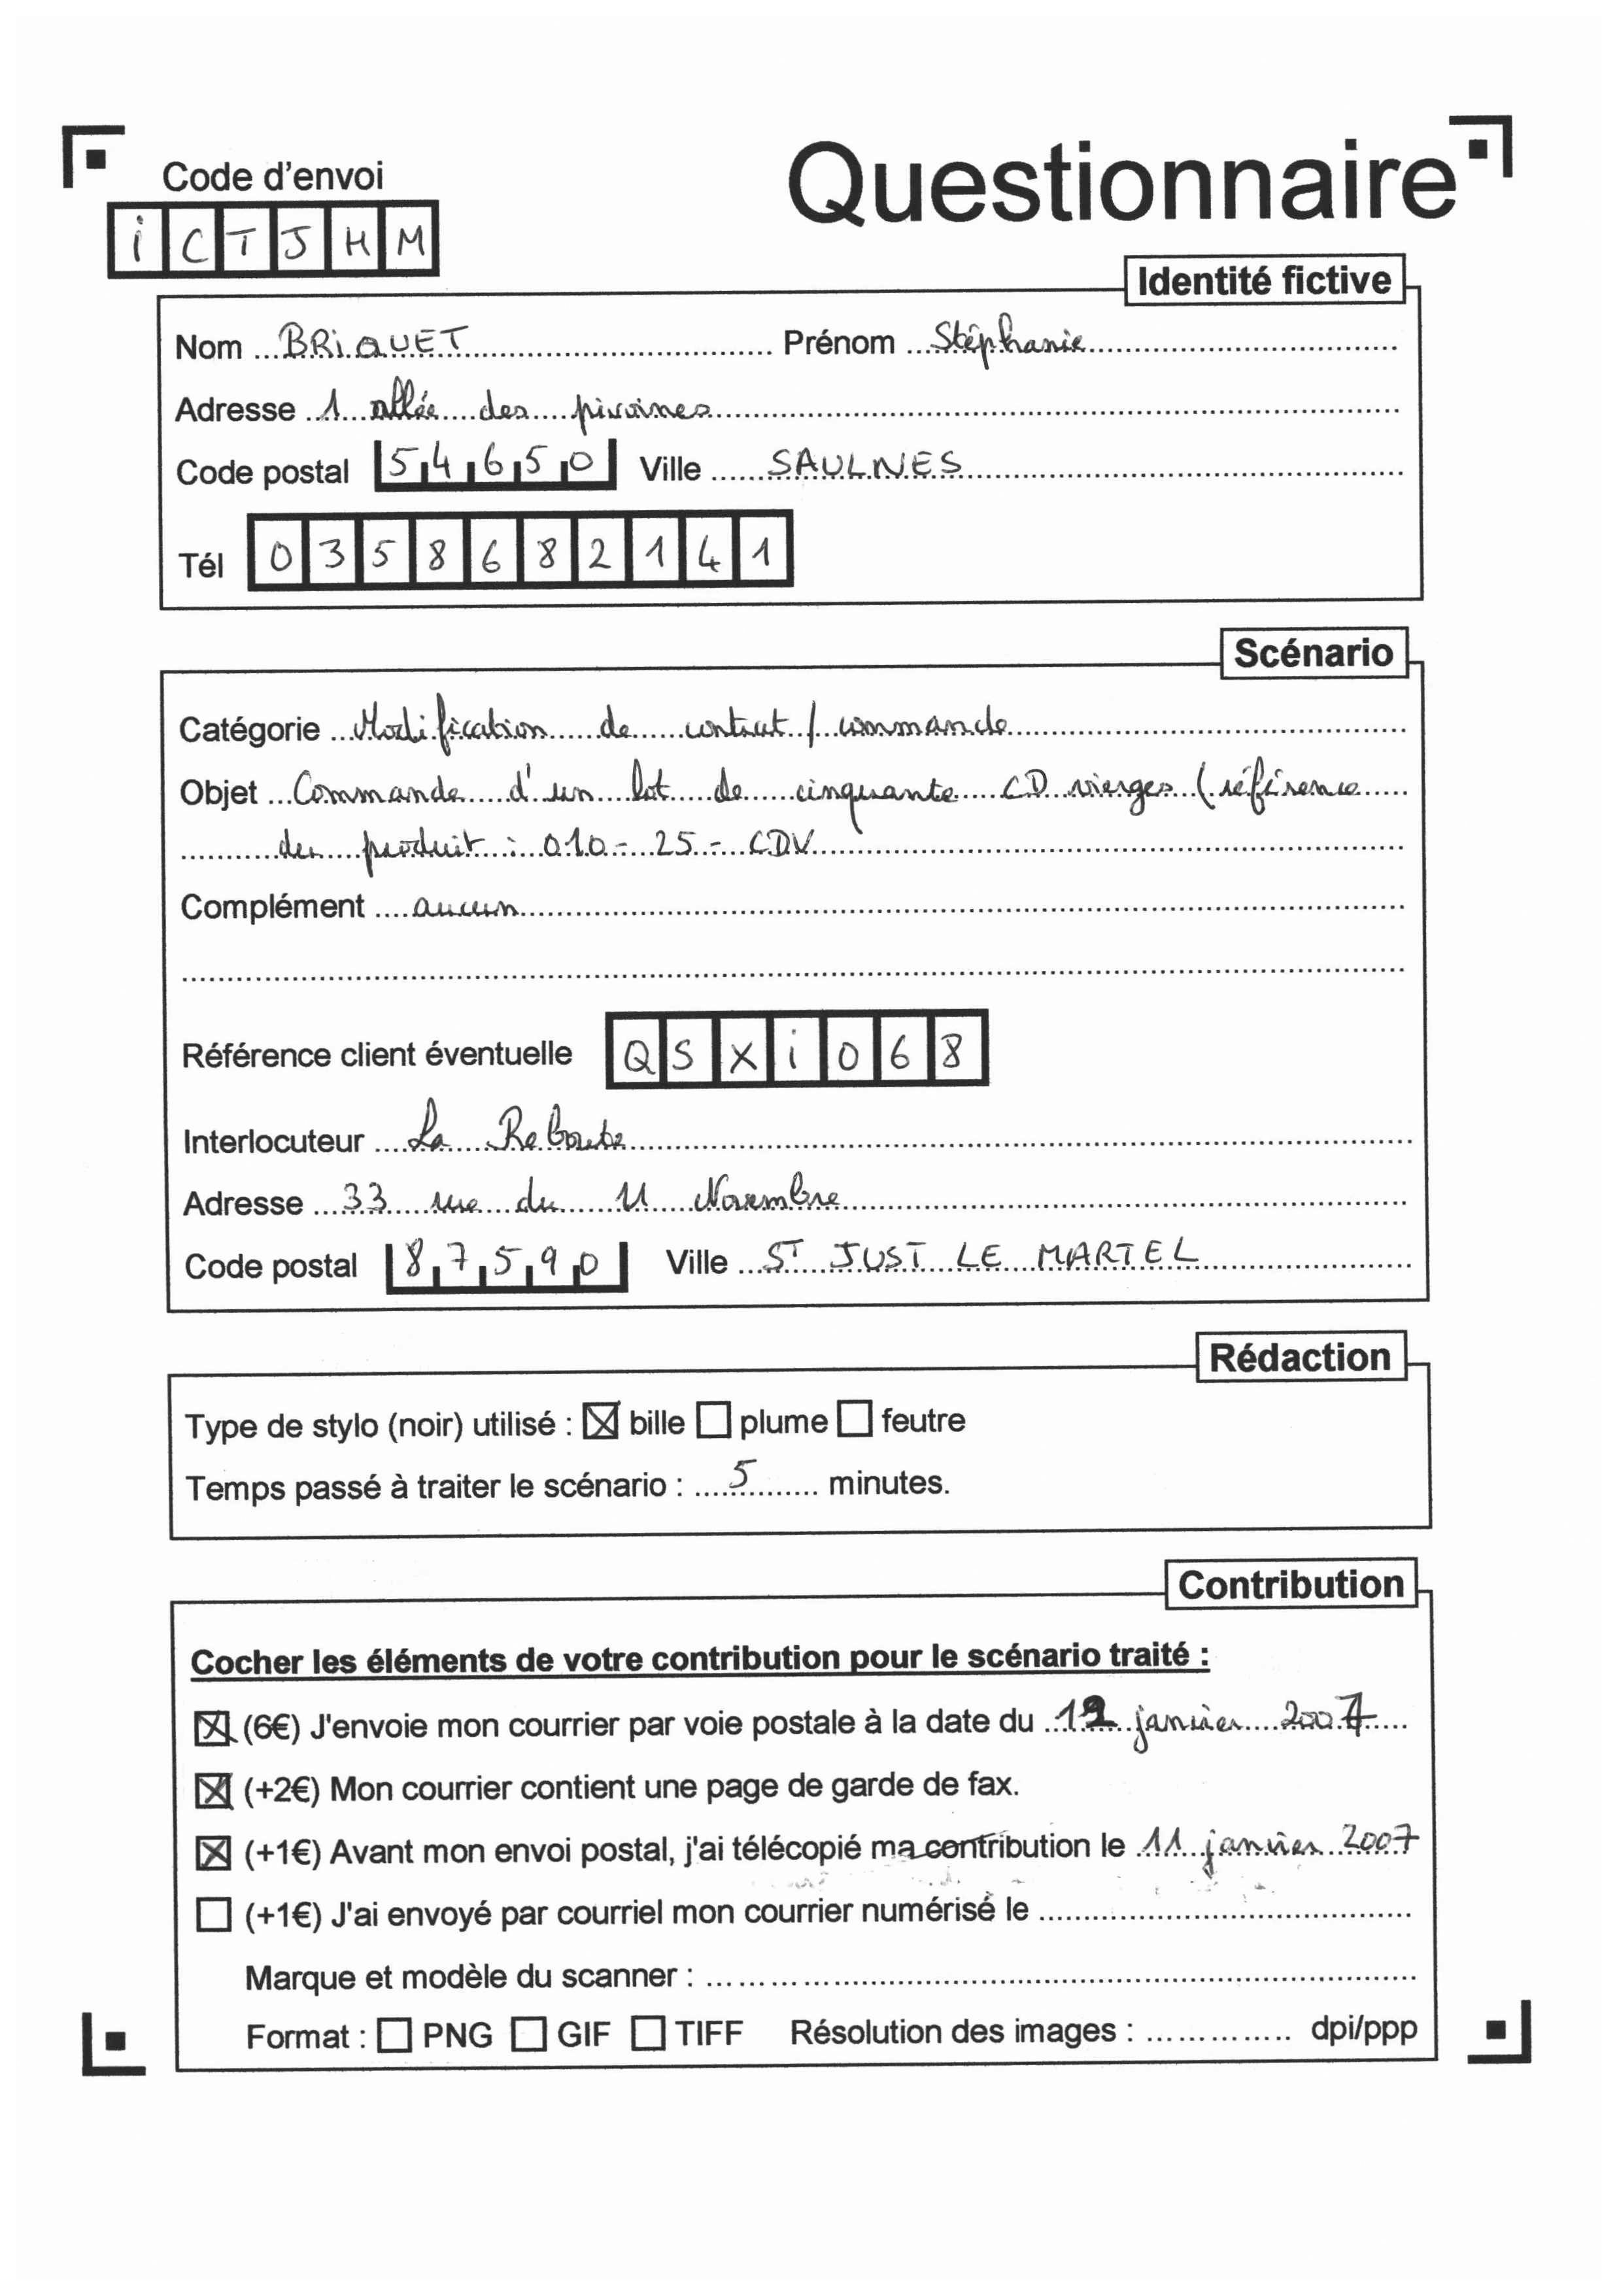 Code d'envoi
iCTJHM
Questionnaire
Identité fictive
Nom BRiQUET Prénom Stéphanie
Adresse 1 allée des pivoines
Code postal 54650 Ville SAULNES
Tél 0358682141
Scénario
Catégorie Modification de contrat / commande
Objet Commande d'un lot de cinquante CD vierges (référence
du produit : 010 - 25 - CDV
Complément aucun
Référence client éventuelle QSXi068
Interlocuteur La Reboute
Adresse 33 rue du 11 Novembre
Code postal 87590 Ville ST JUST LE MARTEL
Rédaction
Type de stylo (noir) utilisé : ☒ bille ☐ plume ☐ feutre
Temps passé à traiter le scénario : 5 minutes.
Contribution
Cocher les éléments de votre contribution pour le scénario traité :
☒ (6€) J'envoie mon courrier par voie postale à la date du 12 janvier 2007
☒ (+2€) Mon courrier contient une page de garde de fax.
☒ (+1€) Avant mon envoi postal, j'ai télécopié ma contribution le 11 janvier 2007
☐ (+1€) J'ai envoyé par courriel mon courrier numérisé le
Marque et modèle du scanner :
Format : ☐ PNG ☐ GIF ☐ TIFF Résolution des images : dpi/ppp